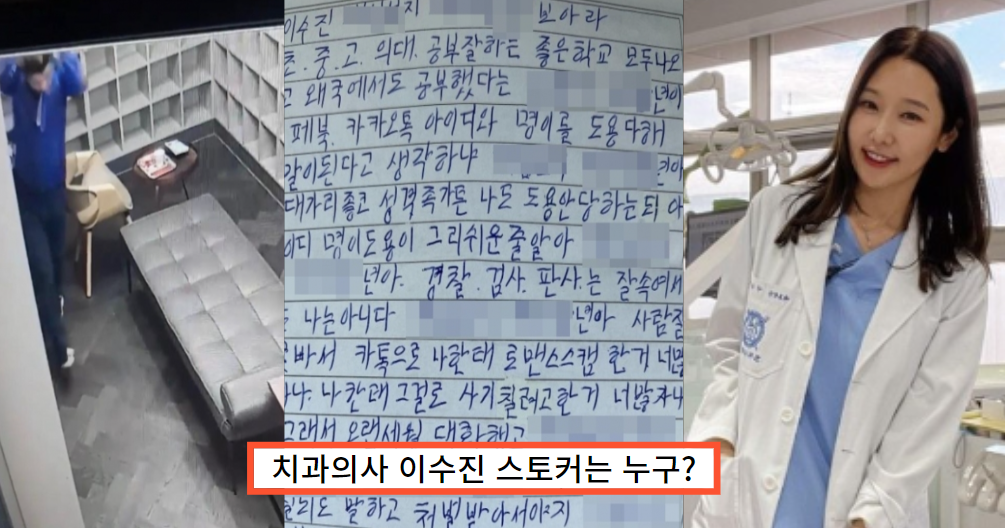 이수진 보아라
초.중.고.의대.공부잘하트 좋은학교 모두나오
고 왜국에서도 공부했다는 년이
페북.카카오톡 아이디와 명이를 도용다해
말이된다고 생각하냐 년아
대가리좋고 성격족가튼 나도 도용안당하는되 아
이디 명이도용이 그리쉬운줄알아
년아. 경찰.검사.판사.는 잘속여서
나는아니다 년아 사람잘
카톡으로 나한태 로맨스스캠 한거 너맞
나한태 그걸로 사기칠려고한거 너맞자나
그래서 오랜세월 대화해고
치과의사 이수진 스토커는 누구?
말하고 처벌받아서야지